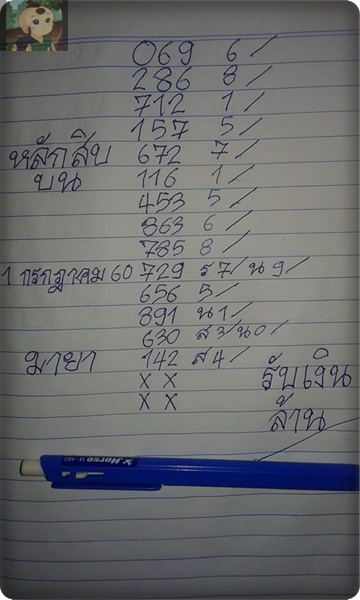 069 6/
286 8/
712 1/
157 5/
หลักสิบ 672 7/
บน 116 1/
453 5/
863 6/
785 8/
1 กรกฎาคม 60 729 ร7/น9/
656 5/
891 น1/
630 ส3/น0/
มายา 142 ส4/
x x
x x
รับเงิน
ล้าน
Horse H-402